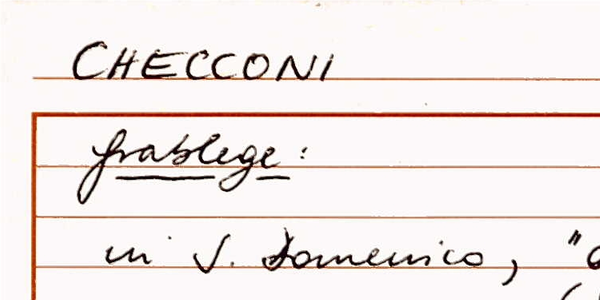 CHECCONI
Grablege:
in S. Domenico, "